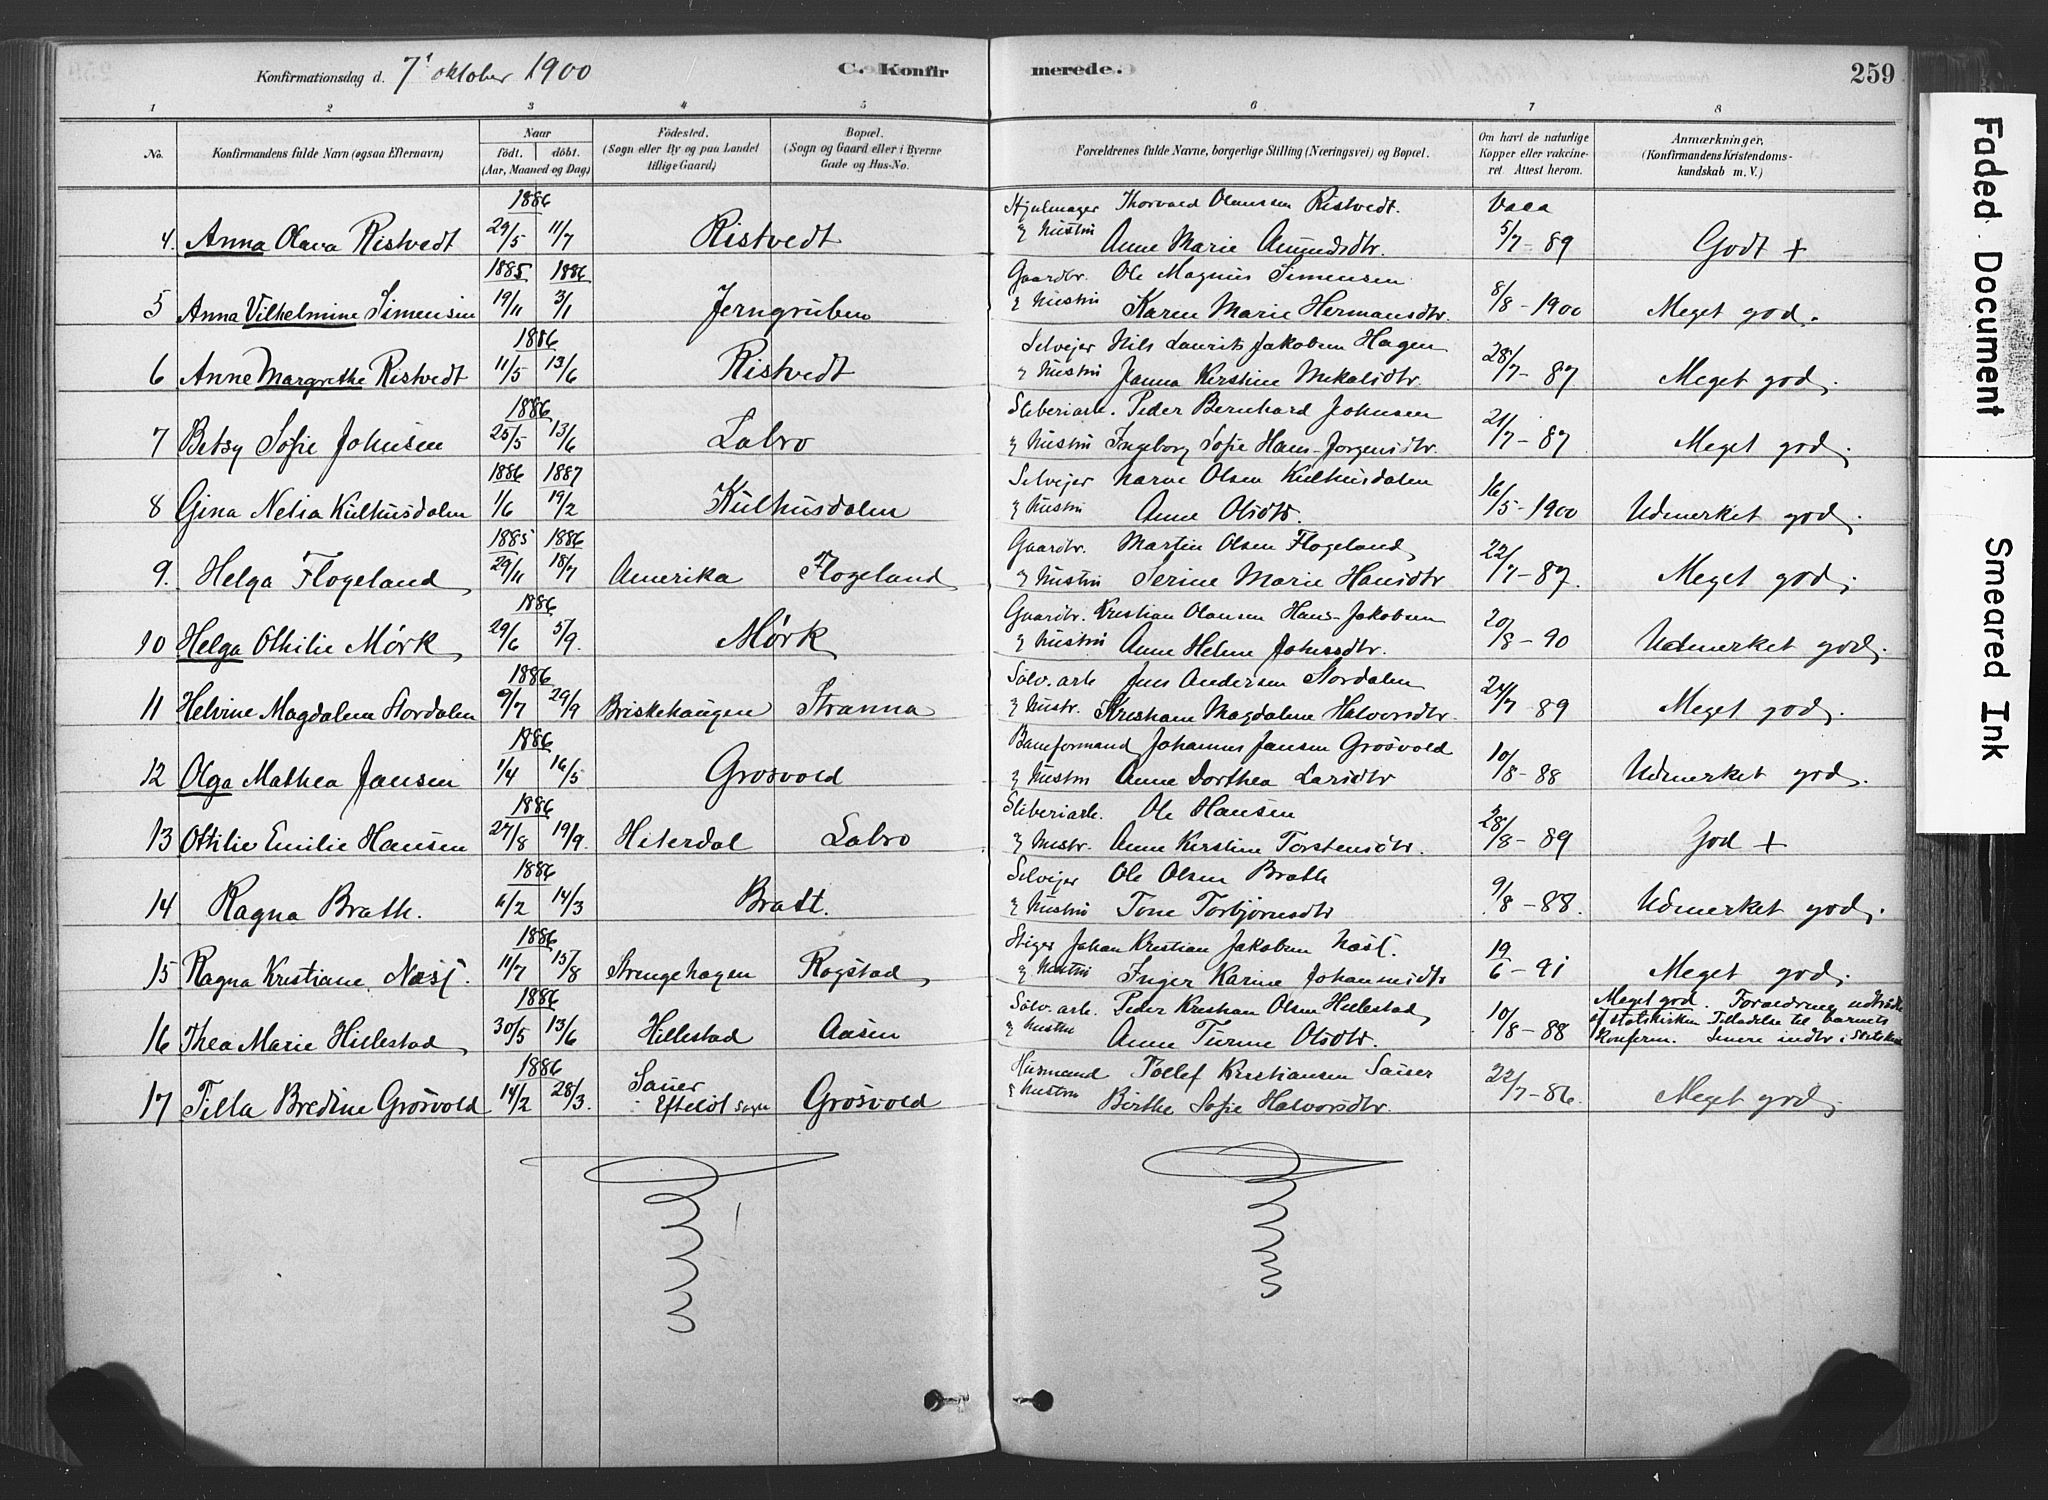 Konfirmationsdag d. 7' oktober 1900 C. Konfirmerede. 259
1 2 3 4 5 6 7 8
No. Konfirmandens fulde Navn (ogsaa Efternavn) Naar födt. döbt. (Aar, Maaned og Dag) Födested. (Sogn eller By og paa Landet tillige Gaard) Bopæl. (Sogn og Gaard eller i Byerne Gade og Hus-No. Forældrenes fulde Navne, borgerlige Stilling (Næringsvei) og Bopæl. Om havt de naturlige Kopper eller vakcineret Attest herom. Anmærkninger, (Konfirmandens Kristendomskundskab m. V.)
1886 Hjulmager Thorvald Olaussen Ristvedt. Vacc
4. Anna Olava Ristvedt 29/5 11/7 Ristvedt & Hustru Anne Marie Amundsdtr. 5/7-89 Godt +
1885 1886 Gaardbr. Ole Magnus Simensen
5 Anna Vilhelmine Simensen 19/11 3/1 Jerngruben & Hustru Karen Marie Hermansdtr. 8/8-1900 Meget god.
1886 Selvejer Nils Laurits Jakobsen Hagen
6 Anne Margrethe Ristvedt 11/5 13/6 Ristvedt & Hustru Janna Kirstine Mikalsdtr 28/7-87 Meget god.
1886 Sliberiarb. Peder Bernhard Johnsen
7 Betsy Sofie Johnsen 25/5 13/6 Labro & Hustru Ingeborg Sofie Hans-Jorgensdtr. 21/7-87 Meget god.
1886 1887 Selvejer Narve Olsen Kulhusdalen
8 Gina Nelia Kulhusdalen 1/6 19/2 Kulhusdalen & Hustru Anne Olsdtr. 16/5-1900 Udmerket god.
1885 1886 Gaardbr. Martin Olsen Flogeland
9. Helga Flogeland 29/11 18/7 Amerika Flogeland & Hustru Serine Marie Hansdtr 22/7-87. Meget god.
1886 Gaardbr. Kristian Olausen Hans-Jakobsen
10 Helga Othilie Mörk 29/6 5/9. Mörk & Hustru Anne Helene Johnsdtr. 20/8-90 Udmerket god.
1886 Sølv. arb Jens Andersen Stordalen
11 Helvine Magdalene Stordalen 9/7 29/9 Briskehaugen Stranna & Hustr. Kristiane Magdalene Halvorsdtr. 24/7-89 Meget god.
1886 Baneformand Johannes Jansen Grosvold
12 Olga Mathea Jansen 1/4 16/5 Grosvold & Hustru Anne Dorthea Larsdtr 10/8-88 Udmerket god.
1886 Sliberiarb. Ole Hansen
13 Othilie Emilie Hansen 27/8 19/9. Hiterdal Labro & Hustr. Anne Kirstine Torstensdtr. 28/8-89 God +
1886 Selvejer Ole Olsen Brath
14 Ragna Brath. 6/2 14/3 Bratt. & Hustru Tone Torbjørnsdtr 9/8-88. Udmerket god.
1886 Stiger Johan Kristian Jakobsen Næss.
15 Ragna Kristiane Næss. 11/7 15/8 Strengehagen Rogstad & Hustru Inger Karine Johannesdtr 19/6-91 Meget god.
1886 Sølv. arb. Peder Kristian Olsen Hillestad Meget god. Forældrene udtraadte
af statskirken Tilladelse til barnets
16 Thea Marie Hillestad 30/5 13/6 Hillestad Aasen & Hustru Anne Turine Olsdtr. 10/8-88 Konfirm. Senere indtr. i Statskirk
1886 Sauer Husmand Tollef Kristiansen Sauer
17 Tilla Bredine Grosvold 14/2 28/3. i Efteløt sogn Grosvold & Hustru Birthe Sofie Halvorsdtr. 22/7-86. Meget god.
Faded Document
Smeared Ink